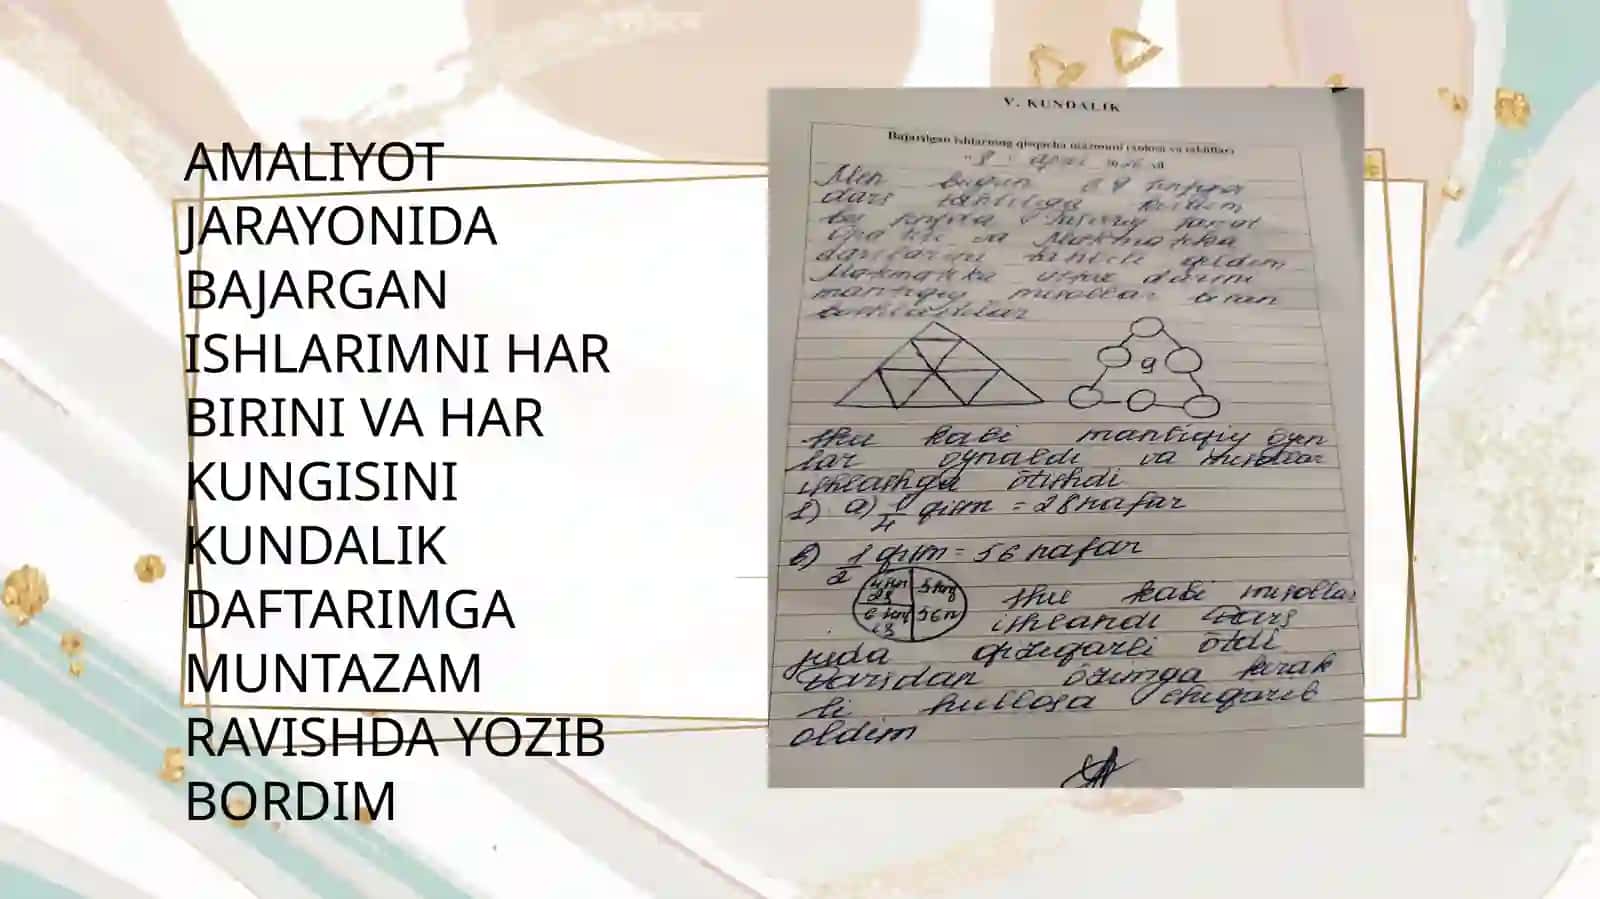 AMALIYOT
JARAYONIDA
BAJARGAN
ISHLARIMNI HAR
BIRINI VA HAR
KUNGISINI
KUNDALIK
DAFTARIMGA
MUNTAZAM
RAVISHDA YOZIB
BORDIM
V. KUNDALIK
Bajarilgan ishlarning qisqacha mazmuni xulosa va takliflar
Men bugun
dars tahliliga kirdim
bu sinfda Tasviriy sanat
va Matematika
darslarini tahlil qildim
Matematika
mantiqiy misollar bilan
boshladilar
9
shu kabi mantiqiy öyin
lar oynaldi va misollar
ishlashga ötishdi
1) a) 1/4 qism = 28 nafar
b) 1/2 qism = 56 nafar
28
56
shu kabi misollar
ishlandi Dars
juda qiziqarli ötdi
Darsdan özimga kerak
li hullosa chiqarib
oldim